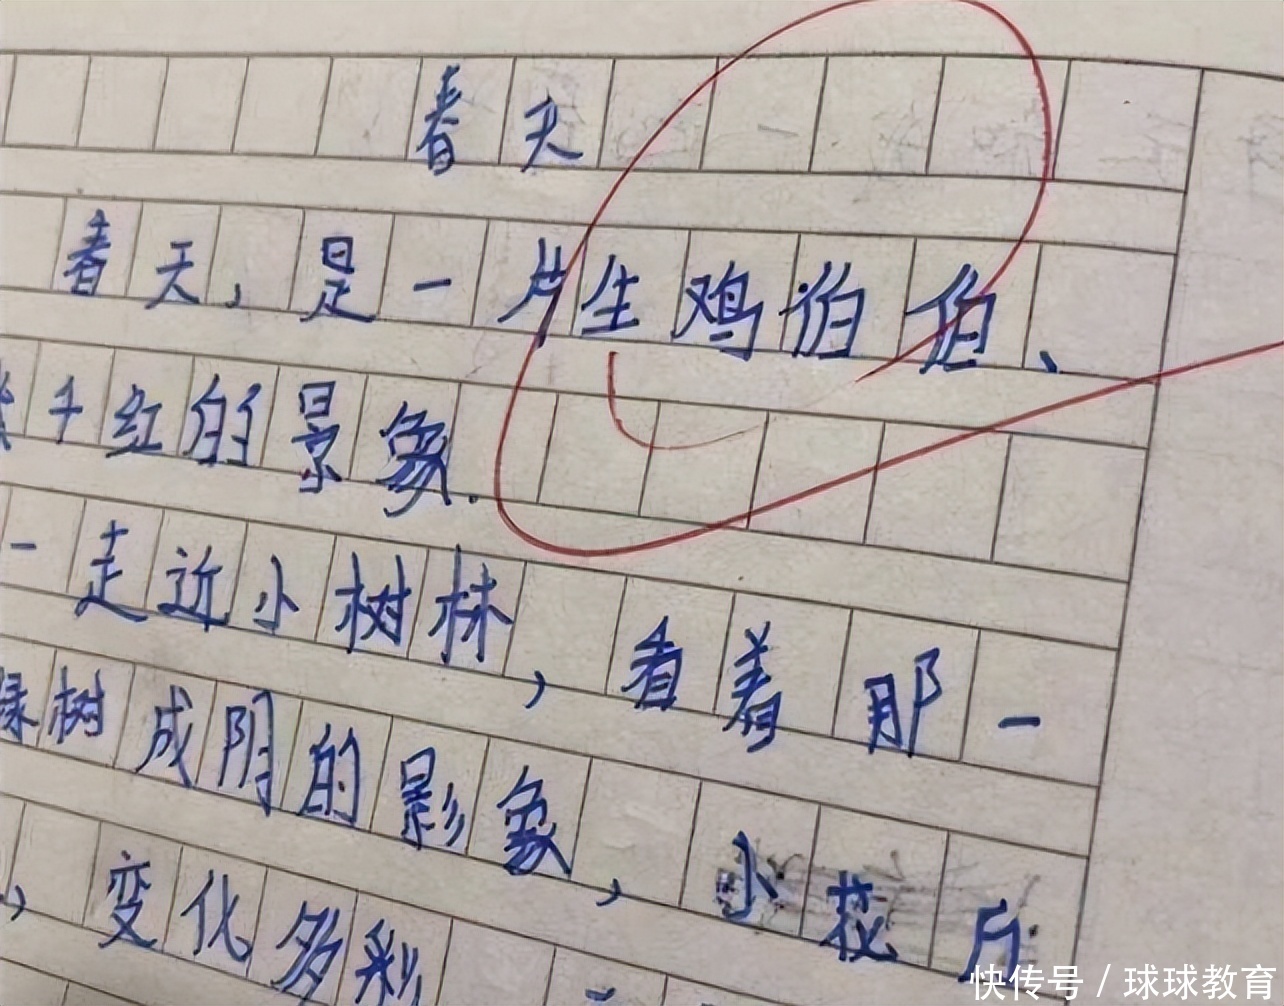 春天
春天，是一片生鸡伯伯、
千红的景象.
一走近小树林，看着那一
绿树成阴的影象，小花
，变化多彩
快传号 / 球球教育